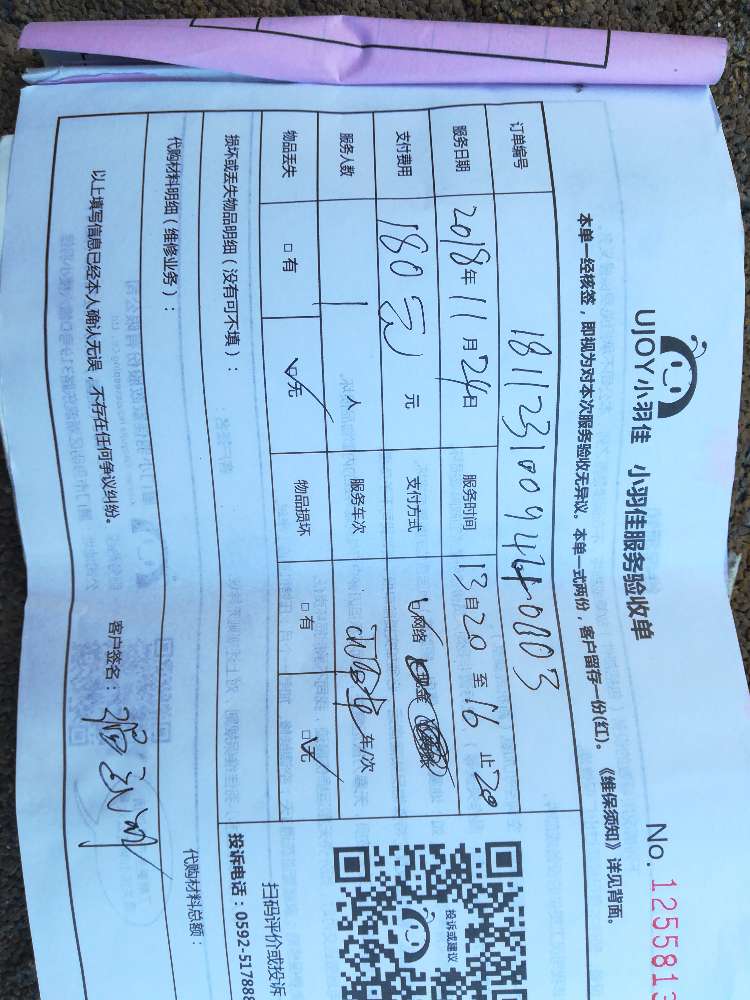 UJOY小羽佳 小羽佳服务验收单
No. 1255813
本单一经核签，即视为对本次服务验收无异议。本单一式两份，客户留存一份(红)。《维保须知》详见背面。
订单编号
服务日期 2018年11月24日 服务时间 13自20至16止20
支付费用 180元 元 支付方式 网络 现金
服务人数 1人 服务车次 车/次
物品丢失 □有 ☑无 物品损坏 □有 ☑无
损坏或丢失物品明细（没有可不填）：
代购材料明细（维修业务）： 代购材料总额：
以上填写信息已经本人确认无误，不存在任何争议纠纷。 客户签名：
投诉或建议
扫码评价或投诉
投诉电话：0592-517888